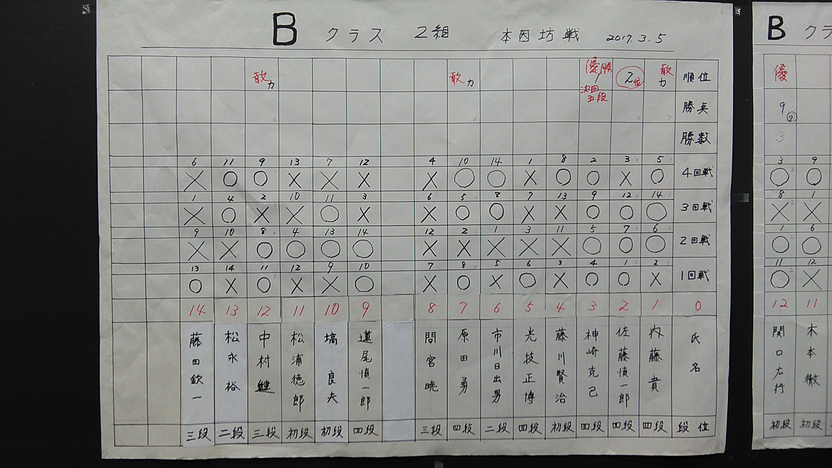 B クラス 2組 本因坊戦 2017.3.5
敢力 敢力 優勝 2位 敢力 順位
次回五段
勝点
勝数
6 11 9 13 7 12 4 10 14 1 8 2 3 5
× ○ ○ × × × × ○ ○ × ○ ○ × ○ 4回戦
1 4 2 10 11 3 6 5 8 7 13 9 12 14
× ○ × × ○ × × ○ ○ × × ○ ○ ○ 3回戦
9 10 8 4 13 14 12 2 1 3 11 5 7 6
× × ○ ○ ○ ○ × × × × × ○ ○ ○ 2回戦
13 14 11 12 9 10 7 8 5 6 3 4 1 2
○ × ○ × × ○ × ○ × ○ × ○ ○ × 1回戦
14 13 12 11 10 9 8 7 6 5 4 3 2 1 0
氏名
内藤貴
佐藤慎一郎
神崎克己
藤川賢治
光技正博
市川日出男
原田勇
間宮暁
道尾慎一郎
塙良夫
松浦徳郎
中村健
松永裕
藤田欽一
三段 二段 三段 初段 初段 四段 三段 四段 二段 四段 初段 四段 四段 四段 段位
B クラ
優
9
3
3 9
○ ○
8 1
× ×
1 6
○ ○
11 12
○ ×
12 11
木本徹
関口広行
初段 初段